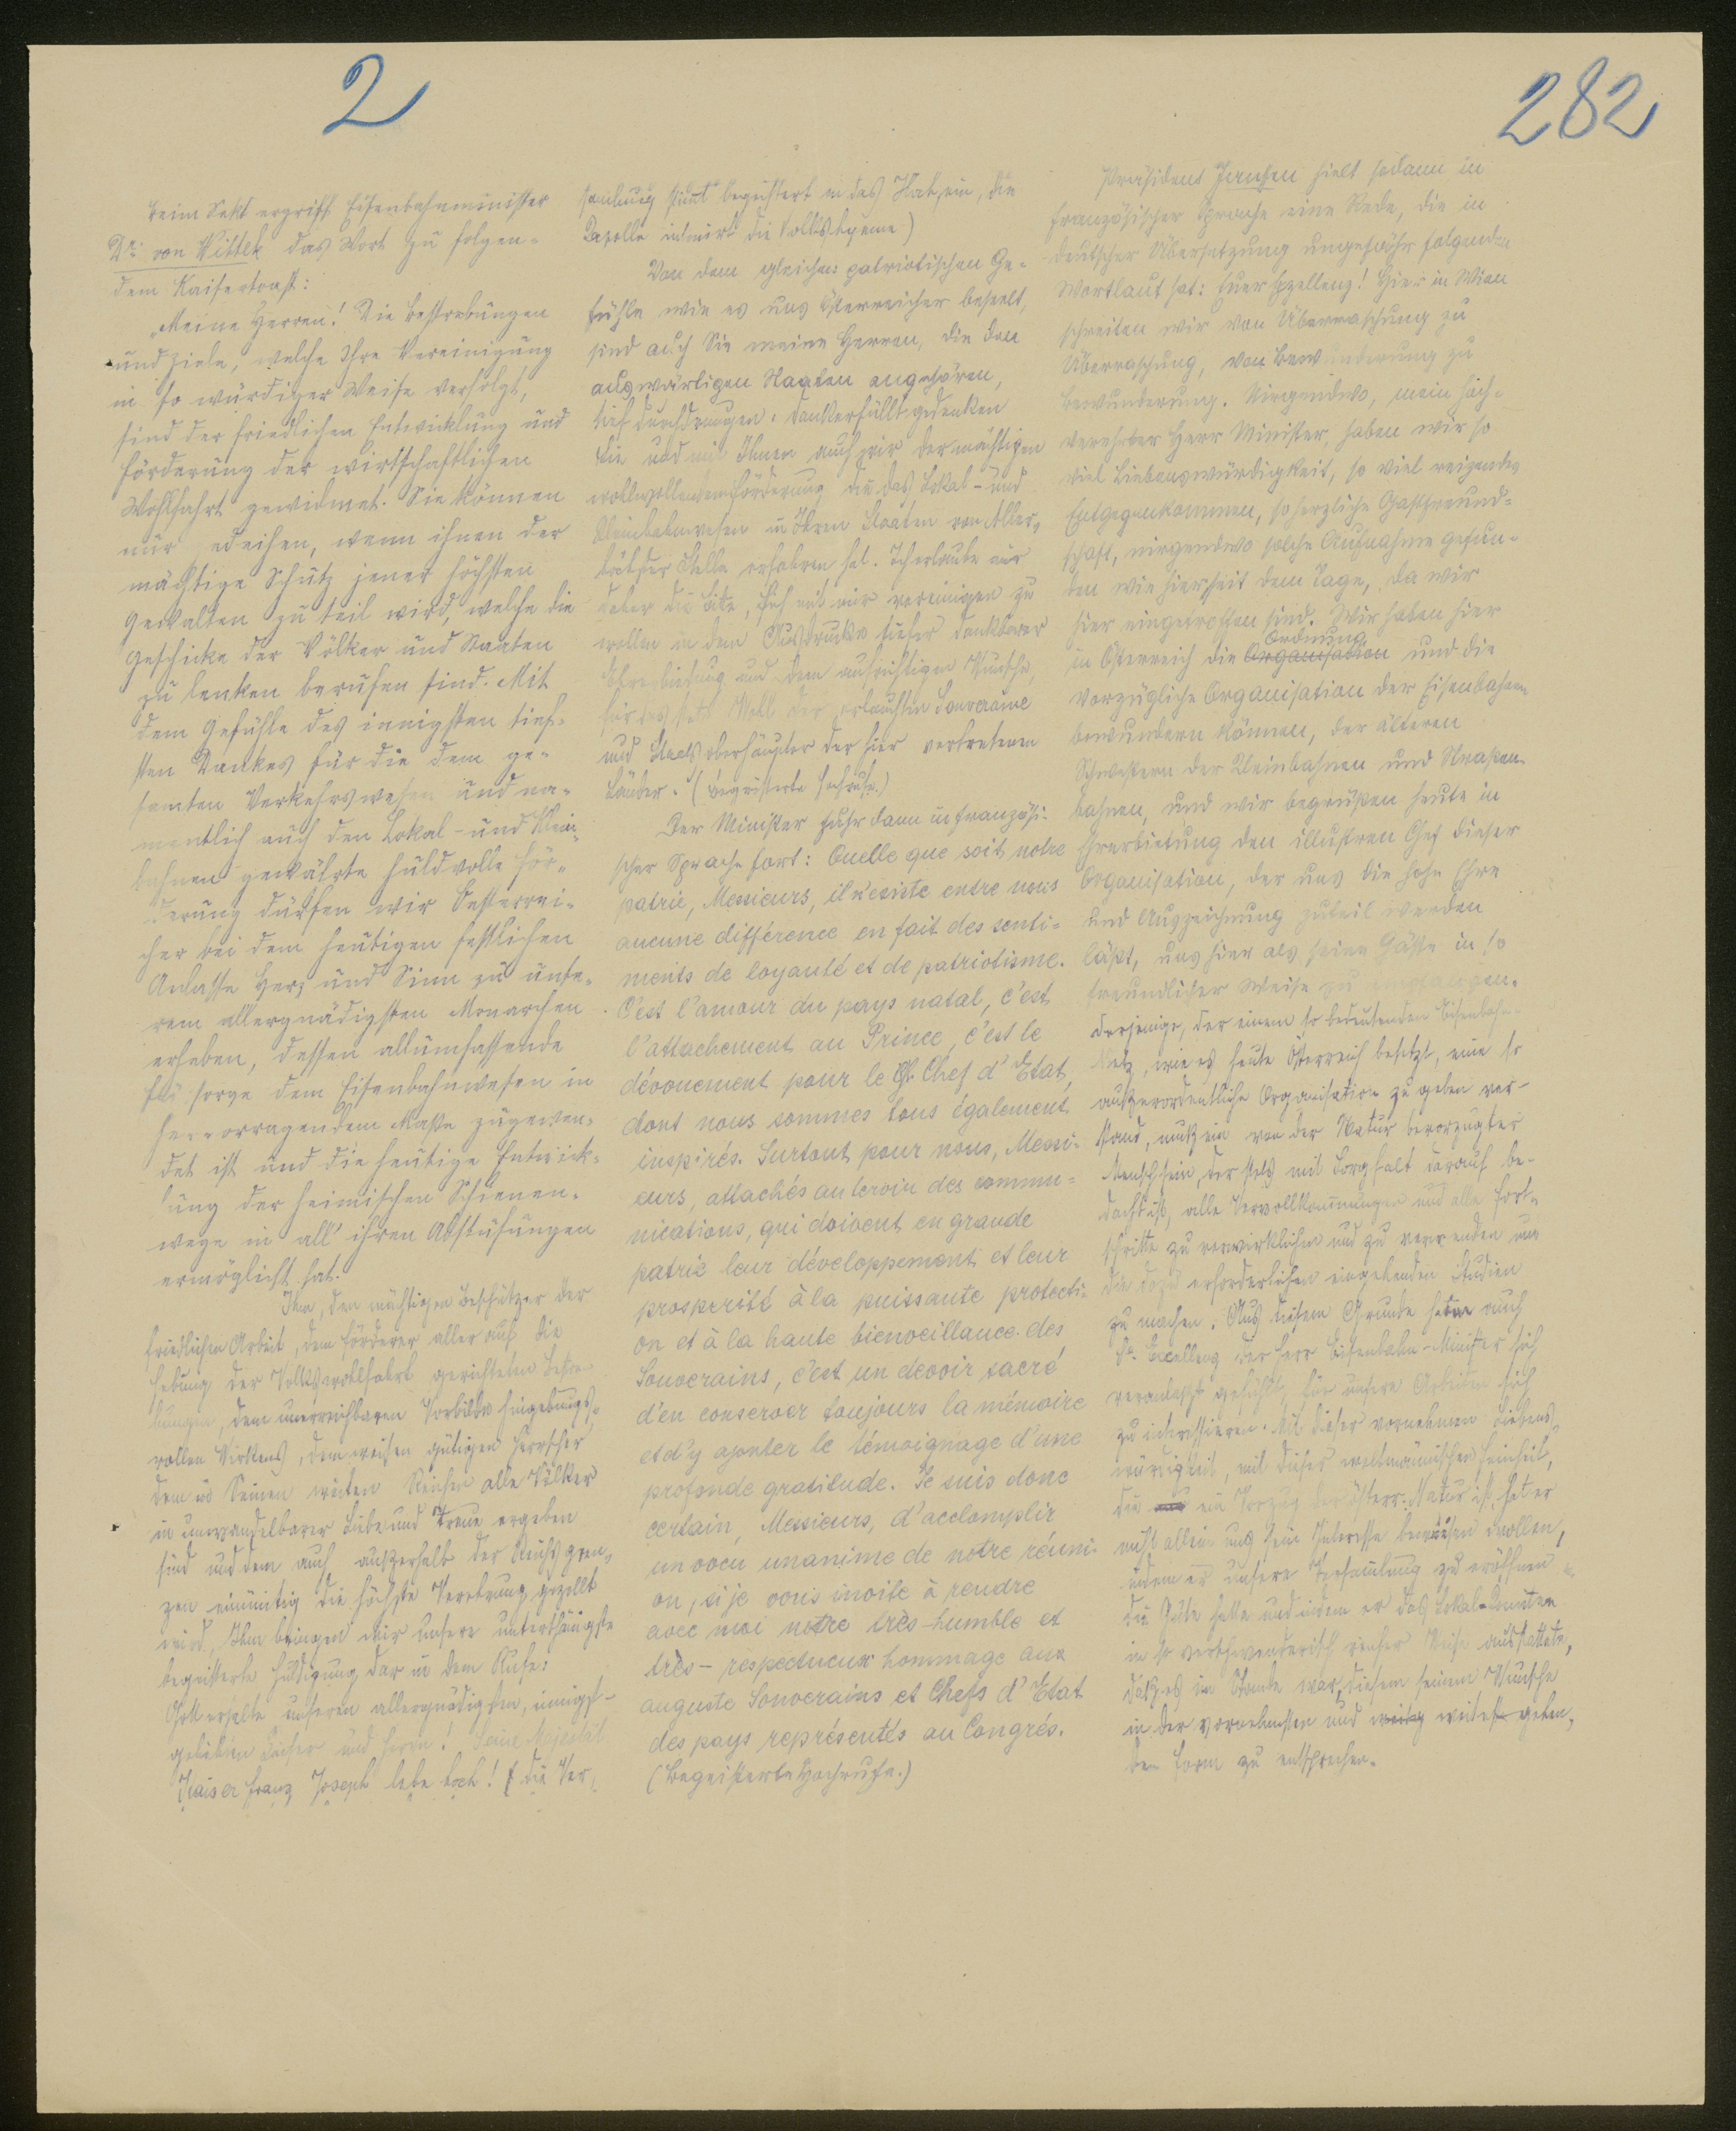 2
282
Beim Sekt ergriff Eisenbahnminister
Dr. von Wittek das Wort zu folgen-
dem Kaisertoast:
„Meine Herren! Die Bestrebungen
und Ziele, welche Ihre Vereinigung
in so würdiger Weise verfolgt,
sind der friedlichen Entwicklung und
Förderung der wirtschaftlichen
Wohlfahrt gewidmet. Sie können
nur gedeihen, wenn ihnen der
mächtige Schutz jener höchsten
Gewalten zu teil wird, welche die
Geschicke der Völker und Staaten
zu lenken berufen sind. Mit
dem Gefühle des innigsten tief-
sten Dankes für die dem ge-
samten Verkehrswesen und na-
mentlich auch den Lokal- und Klein-
bahnen gewährte huldvolle För-
derung dürfen wir Oesterrei-
cher bei dem heutigen festlichen
Anlasse Herz und Sinn zu unse-
rem allergnädigsten Monarchen
erheben, dessen allumfassende
Fürsorge dem Eisenbahnwesen in
hervorragendem Maße zugewen-
det ist und die heutige Entwick-
lung der heimischen Schienen-
wege in all' ihren Abstufungen
ermöglicht hat.
Ihm, dem mächtigen Beschützer der
friedlichen Arbeit, dem Förderer aller auf die
Hebung der Volkswohlfahrt gerichteten Bestre-
bungen, dem unerreichbaren Vorbilde hingebungs-
vollen Wirkens, dem weisen gütigen Herrscher
dem in Seinen weiten Reichen alle Völker
in unwandelbarer Liebe und Treue ergeben
sind und dem auch außerhalb der Reichsgren-
zen einmütig die höchste Verehrung gezollt
wird, Ihm bringen wir unsere unterthänigste
begeisterte Huldigung dar in dem Rufe:
Gott erhalte unseren allergnädigsten, innigst-
geliebten Kaiser und Herrn! Seine Majestät
Kaiser Franz Joseph lebe hoch! (die Ver-
samlung stimt begeistert in das Hoch ein, die
Kapelle intonirt die Volkshymne)
Von dem gleichen patriotischen Ge-
fühle wie es uns Österreicher beseelt,
sind auch Sie meine Herren, die den
auswärtigen Staaten angehören,
tief durchdrungen. Dankerfüllt gedenken
Sie und mit Ihnen auch wir der mächtigen
wohlwollenden Förderung die das Lokal- und
Kleinbahnwesen in Ihren Staaten von Aller-
höchster Stelle erfahren hat. Ich erlaube mir
daher die Bitte, sich mit mir vereinigen zu
wollen in dem Ausdrucke tiefer dankbarer
Ehrerbietung und dem aufrichtigen Wunsche,
für das stete Wohl der erlauchten Souveraine
und Staatsoberhäupter der hier vertretenen
Länder. (Begeisterte Hochrufe.)
Der Minister fuhr dann in französi-
scher Sprache fort: Quelle que soit notre
patrie, Messieurs, il n'existe entre nous
aucune différence en fait des senti-
ments de loyauté et de patriotisme.
C'est l'amour du pays natal, c'est
l'attachement au Prince, c'est le
dévouement pour le Chef d'Etat,
dont nous sommes tous également
inspirés. Surtout pour nous, Messi-
eurs, attachés au service des commu-
nications, qui doivent en grande
patrie leur développement et leur
prosperité à la puissante protecti-
on et à la haute bienveillance des
Souverains, c'est un devoir sacré
d'en conserver toujours la mémoire
et d'y ajouter le témoignage d'une
profonde gratitude. Je suis donc
certain, Messieurs, d'accomplir
un voeu unanime de notre réuni-
on, si je vous invite à rendre
avec moi notre très-humble et
très-respectueux hommage aux
auguste Souverains et Chefs d'Etat
des pays représentés au Congrés.
(Begeisterte Hochrufe.)
Präsident Janssen hielt sodann in
französischer Sprache eine Rede, die in
deutscher Übersetzung ungefähr folgenden
Wortlaut hat: Euer Exzellenz! Hier in Wien
schreiten wir von Überraschung zu
Überraschung, von Bewunderung zu
Bewunderung. Nirgendwo, mein hoch-
verehrter Herr Minister, haben wir so
viel Liebenswürdigkeit, so viel reizendes
Entgegenkommen, so herzliche Gastfreund-
schaft, nirgendwo solche Aufnahme gefun-
den wie hier seit dem Tage, da wir
hier eingetroffen sind. Wir haben hier
Ordnung
in Österreich die Organisation und die
vorzügliche Organisation der Eisenbahnen
bewundern können, der älteren
Schwestern der Kleinbahnen und Straßen-
bahnen, und wir begrüßen heute in
Ehrerbietung den illustren Chef dieser
Organisation, der uns die hohe Ehre
und Auszeichnung zuteil werden
läßt, uns hier als seine Gäste in so
freundlicher Weise zu empfangen.
Derjenige, der einem so bedeutenden Eisenbahn-
Netz, wie es heute Österreich besitzt, eine so
außerordentliche Organisation zu geben ver-
stand, muß ein von der Natur bevorzugter
Mensch sein, der stets mit Sorgfalt darauf be-
dacht ist, alle Vervollkommnungen und alle Fort-
schritte zu verwirklichen und zu verwenden und
die dazu erforderlichen eingehenden Studien
zu machen. Aus diesem Grunde hat auch
Se. Excellenz der Herr Eisenbahn-Minister sich
veranlaßt gefühlt, für unsere Arbeiten sich
zu interessieren. Mit dieser vornehmen Liebens-
würdigkeit, mit dieser weltmännischen Feinheit,
die ein Vorzug der österr. Natur ist, hat er
nicht allein uns sein Interesse beweisen wollen,
indem er unsere Versamlung zu eröffnen
die Güte hatte und indem er das Lokal-Komitee
in so verschwenderisch reicher Weise ausstattete,
daß es im Stande war, diesem seinem Wunsche
in der vornehmsten und weitest gehen-
den Form zu entsprechen.